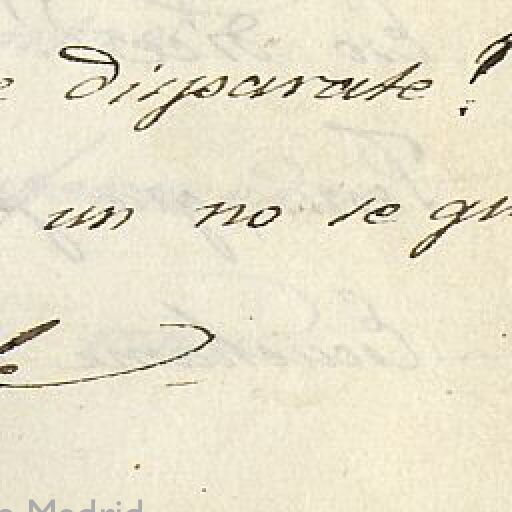 e disparate!
un no se qu
Madrid